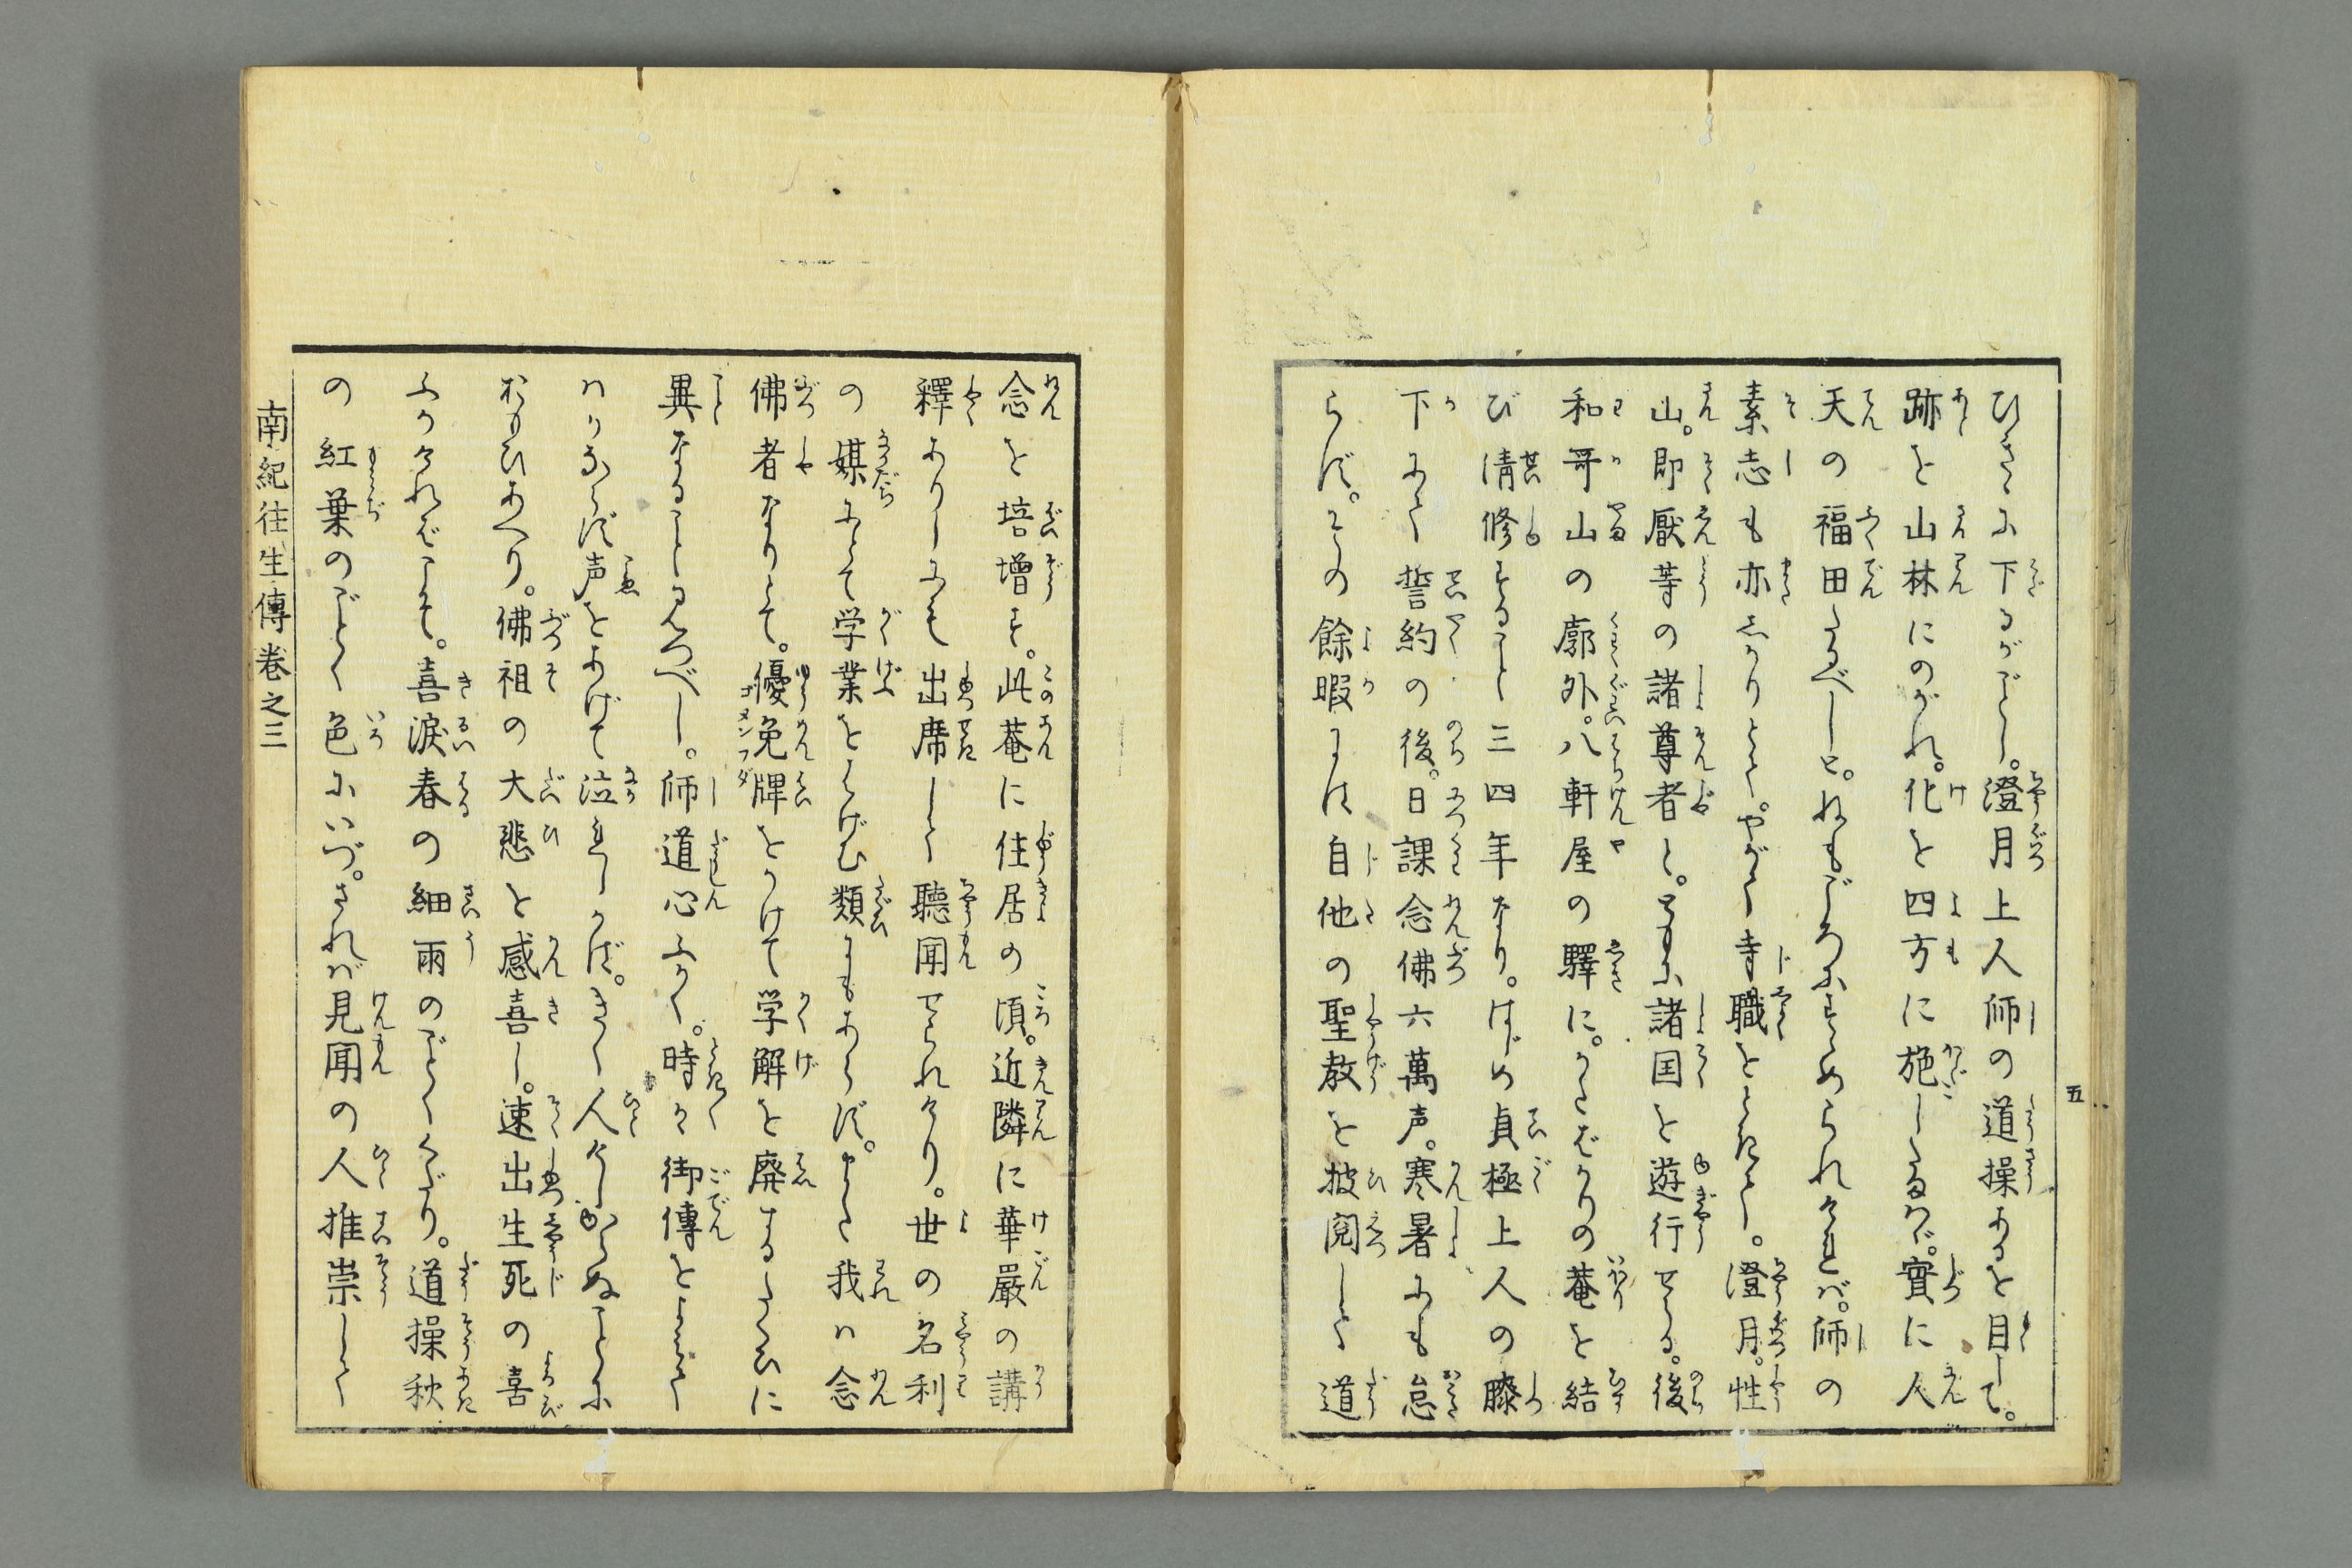 ひきゝに下るがごとし。澄月上人師の道操あるを目して。
跡を山林にのがれ。化を四方に施したるハ。實に人
天の福田たるべしと。ねもごろにすゝめられけれバ。師の
素志も亦しかりとて。やがて寺職をときたまひし。澄月。性
山。即厭等の諸尊者と。ともに諸国を遊行せらる。後
和哥山の廓外。八軒屋の驛に。かたばかりの菴を結
び清修すること三四年なり。はじめ貞極上人の膝
下にて誓約の後。日課念佛六萬声。寒暑にも怠
らず。その餘暇には自他の聖教を披閲して道
念を培増す。此菴に住居の頃。近隣に華嚴の講
釋ありしにも出席して聽聞せられけり。世の名利
の媒にとて学業をはげむ類にもあらず。また我ハ念
佛者なりとて。優免牌をかけて学解を廃するたぐひに
異なることしんぬべし。師道心ふかく。時々御傳をよみて
ハかならず声をあげて泣れしかば。きく人けしからぬことに
おもひあへり。佛祖の大悲を感喜し。速出生死の喜
ふかけれバこそ。喜涙春の細雨のごとくくだり。道操秋
の紅葉のごとく色にいづ。されバ見聞の人推崇して
南紀往生傳卷之三
五